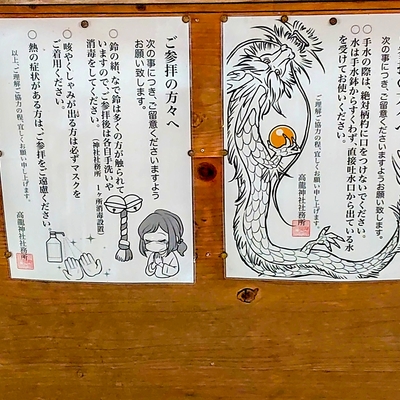 ご参拝の方々へ
次の事につき、ご留意くださいますよう
お願い致します。
○鈴の緒、なで鈴は多くの方が触られて
いますので、ご参拝後は各自手洗いや
消毒をしてください。
(神社社務所
所に消毒設置)
○咳やくしゃみが出る方は必ずマスクを
ご着用ください。
○熱の症状がある方は、ご参拝をご遠慮ください。
以上、ご理解ご協力の程、宜しくお願い申し上げます。
高龍神社社務所
次の事につき、ご留意くださいますよう
お願い致します。
○手水の際は、絶対柄杓に口をつけないでください。
○水は手水鉢からすくわず、直接吐水口から出ている水
を受けてお使いください。
ご理解ご協力の程、宜しくお願い申し上げます。
高龍神社社務所